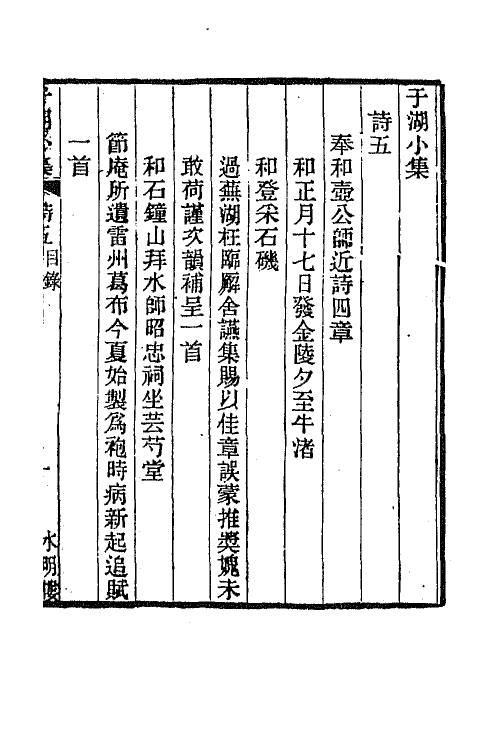 于湖小集
詩五
奉和壺公師近詩四章
和正月十七日發金陵夕至牛渚
和登采石磯
過蕪湖枉臨廨舍讌集賜以佳章誤蒙推奬媿未
敢荷謹次韻補呈一首
和石鐘山拜水師昭忠祠坐芸芍堂
節庵所遺雷州葛布今夏始製爲袍時病新起追賦
一首
于湖小集 詩五目錄 一 水明樓